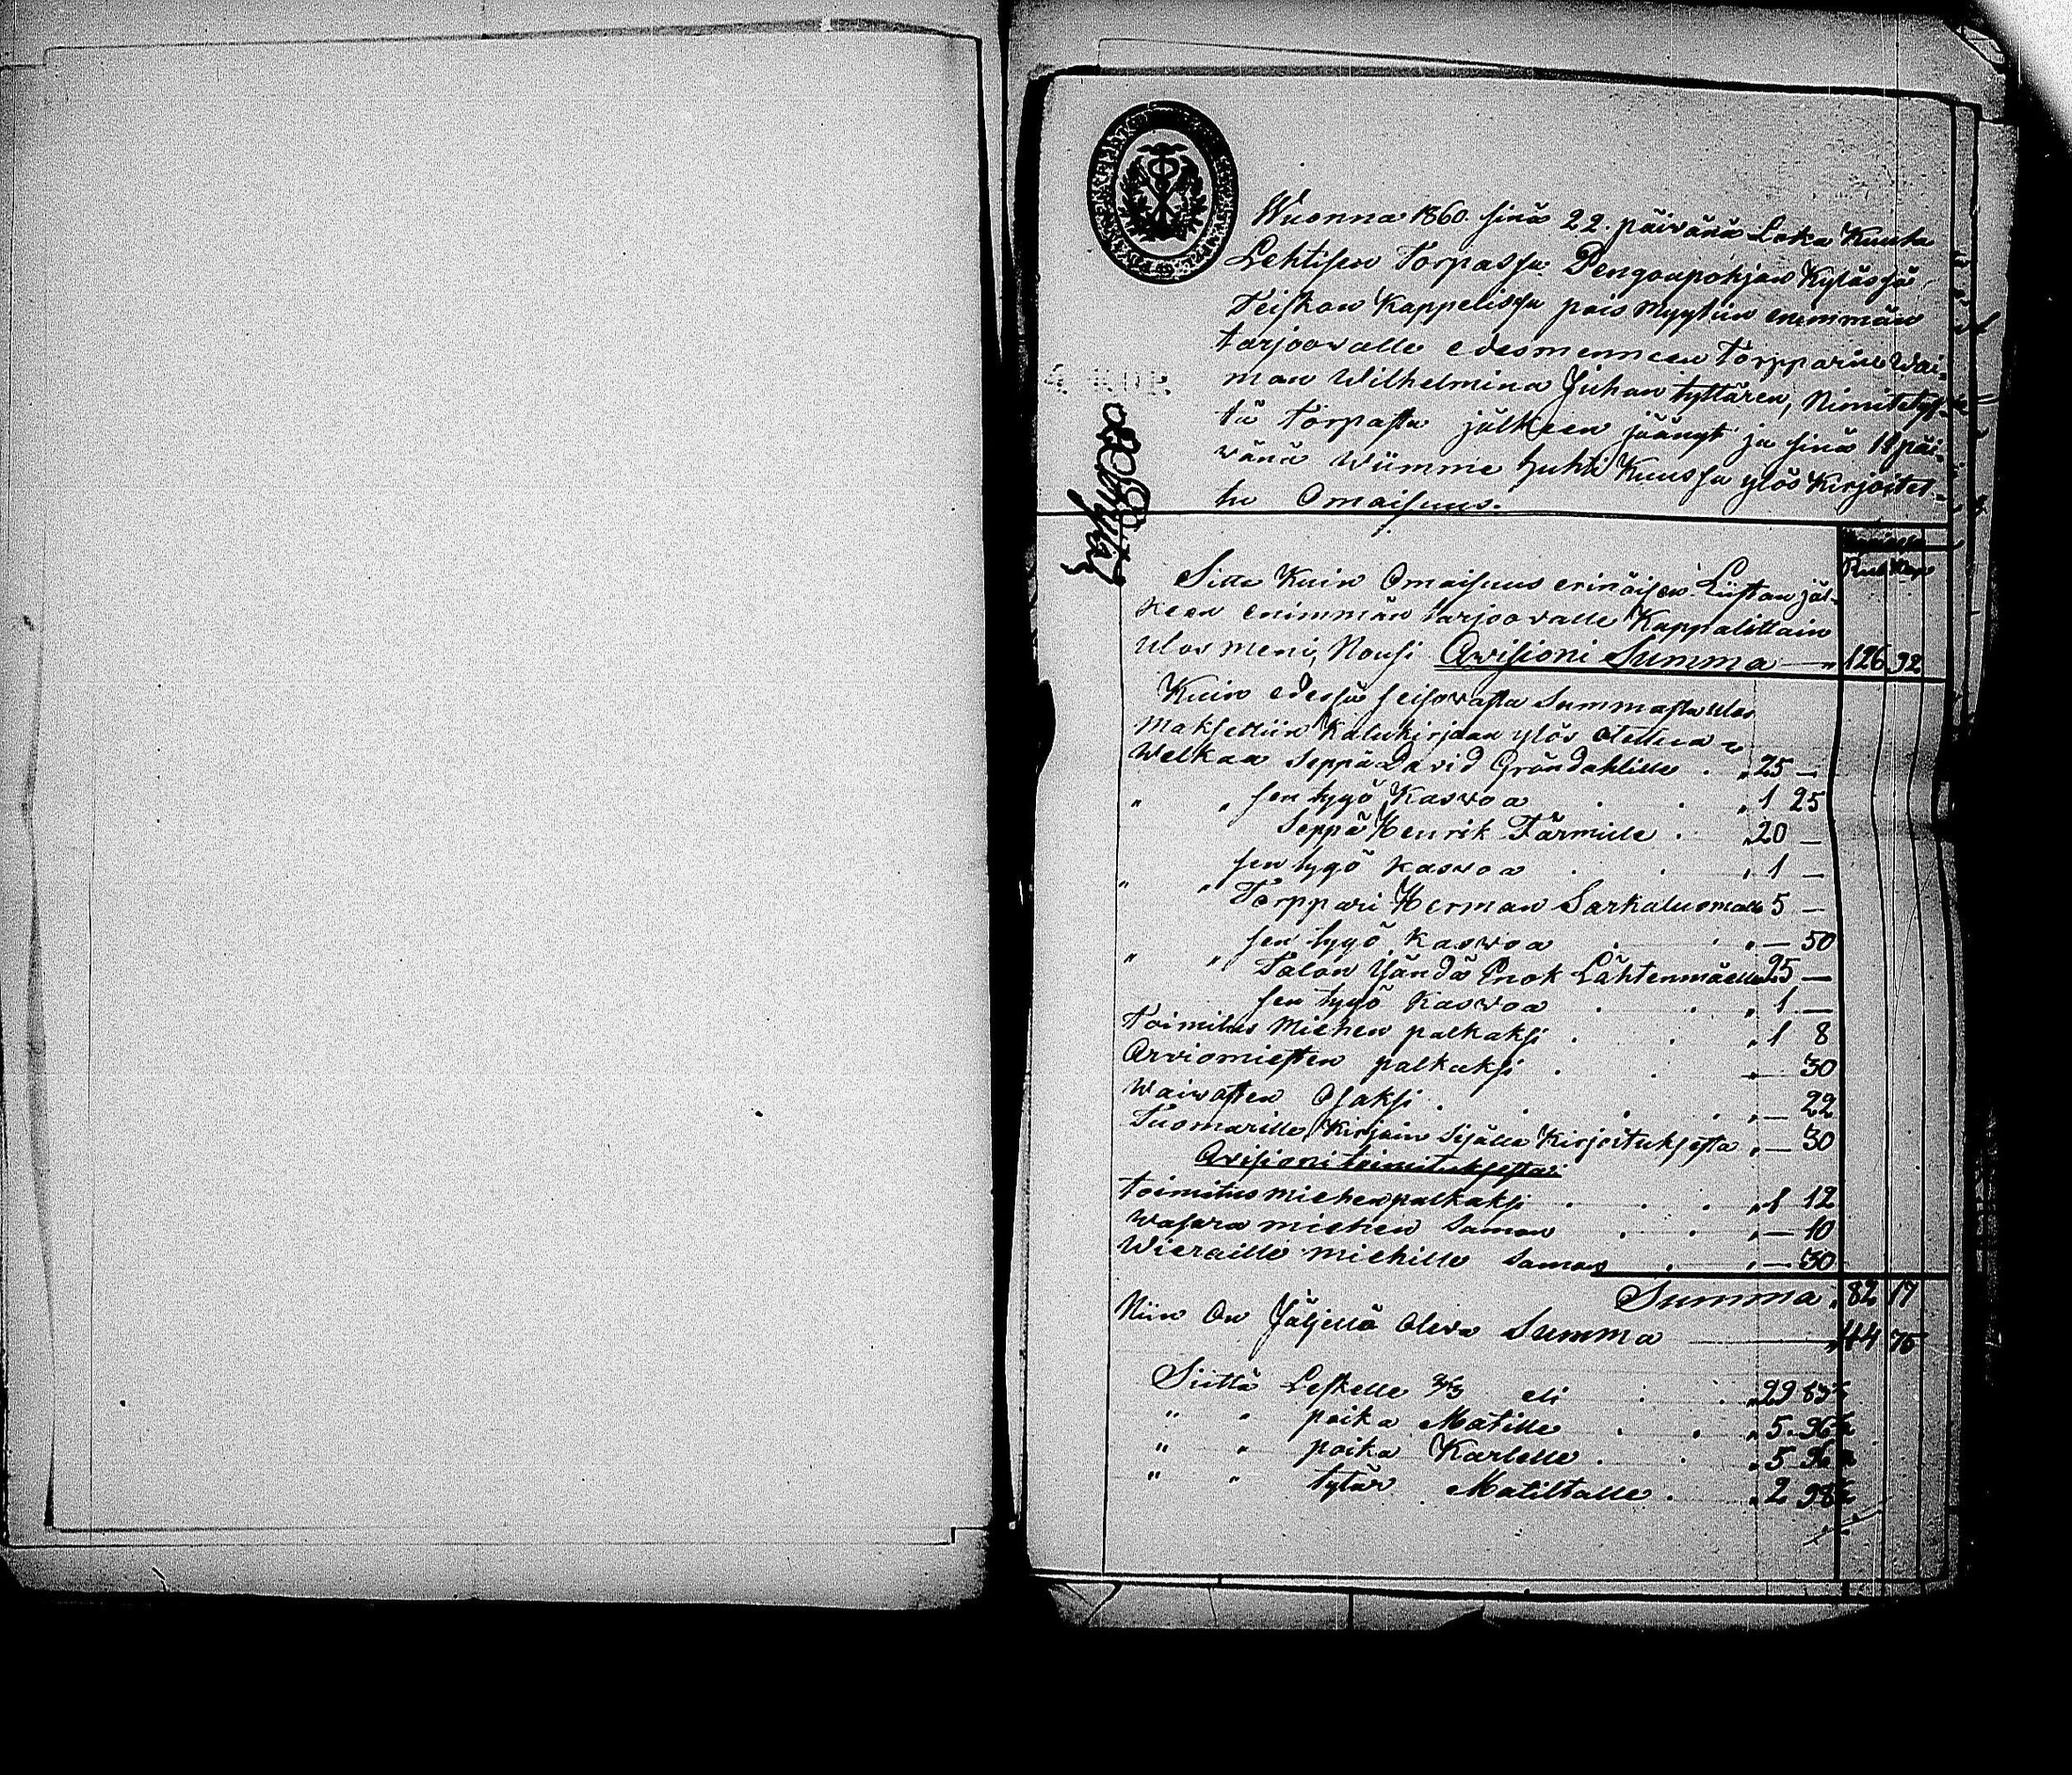 Wuonna 1860. sinä 22. päivänä Loka Kuuta
Lehtisen Torpassa Pengonpohjan Kylässä
Teiskon Kappelissa pois myytiin enimmän
tarjoovalle edesmenneen Torpparin Wai-
man Wilhelmina Juhan tyttären, Nimitetys-
tä Torpasta jälkeen jäänyt ja sinä 18 päi-
vänä Wiimme huhti Kuussa ylös Kirjoitet-
tu Omaisuus.
4 KOP.
Rub Kop
Sitte Kuin Omaisuus erinäisen Liistan jäl-
keen enimmän tarjoovalle Kappalittain
ulos meni, Nousi Avisioni Summa — „ 126 92
Kuin edessä seisovasta Summasta ulos
Maksettiin Kalukirjaan ylös otettua
Welkaa Seppä David Gröndahlille . „ 25 —
„ „ sen tygö Kasvoa . . „ 1 25
Seppä Henrik Färmille . „ 20 —
sen tygö kasvoa . . „ 1 —
„ „ Torppari Herman Sarkaluomalle 5 —
sen tygö Kasvoa . . „ — 50
„ „ Talon Isändä Enok Lähtenmäelle 25 —
sen tygö Kasvoa . . „ 1 —
Toimitus Miehen palkaksi . . „ 1 8
Arviomiesten palkaksi . . „ — 30
Waivasten Osaksi . . . . „ — 22
Tuomarille Kirjain Sisälle Kirjoituksesta „ — 30
Avisioni toimituksesta:
toimitus miehen palkaksi . . . „ 1 12
Wasara miehen Saman . . „ — 10
Wieraille miehille Saman . . „ — 30
Summa „ 82 17
Niin On Jäljellä Oleva Summa — „ 44 75
Siittä Leskelle 2/3 eli . . „ 29 83 1/3
„ „ poika Matille . . „ 5. 96 2/3
„ „ poika Karlelle . . „ 5 96 2/3
„ „ tytär Matiltalle . . „ 2 98 1/3